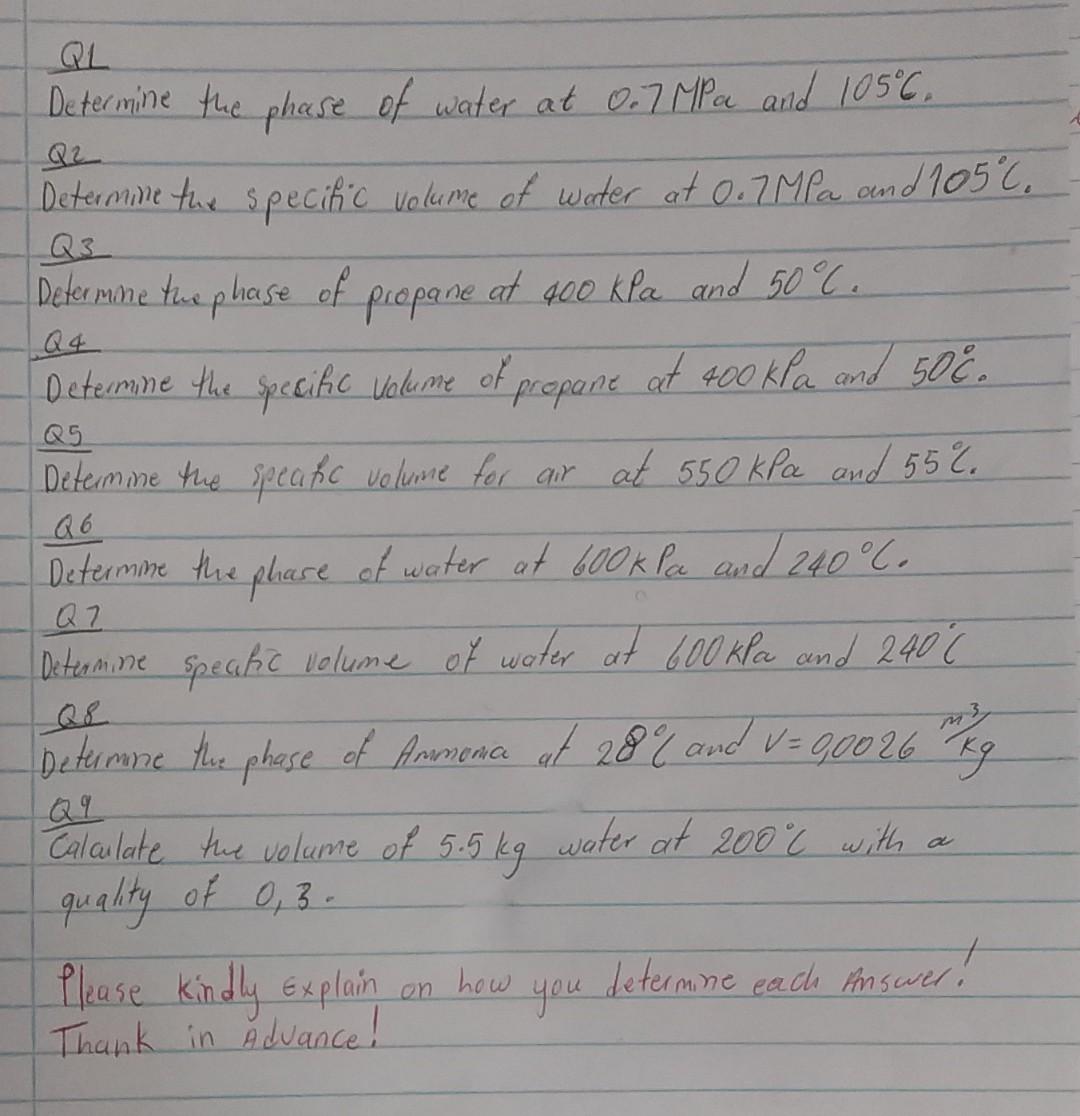 Q1
Determine the phase of water at 0.7 MPa and 105°C.
Q2
Determine the specific volume of water at 0.7MPa and 105°C.
Q3
Determine the phase of propane at 400 kPa and 50°C.
Q4
Determine the specific volume of propane at 400 kPa and 50°C.
Q5
Determine the specific volume for air at 550 kPa and 55°C.
Q6
Determine the phase of water at 600k Pa and 240°C.
Q7
Determine specific volume of water at 600kPa and 240°C
Q8
Determine the phase of Ammonia at 28°C and V=0,0026 m³/kg
Q9
Calculate the volume of 5.5 kg water at 200°C with a
quality of 0,3.
Please kindly Explain on how you determine each Answer!
Thank in Advance!